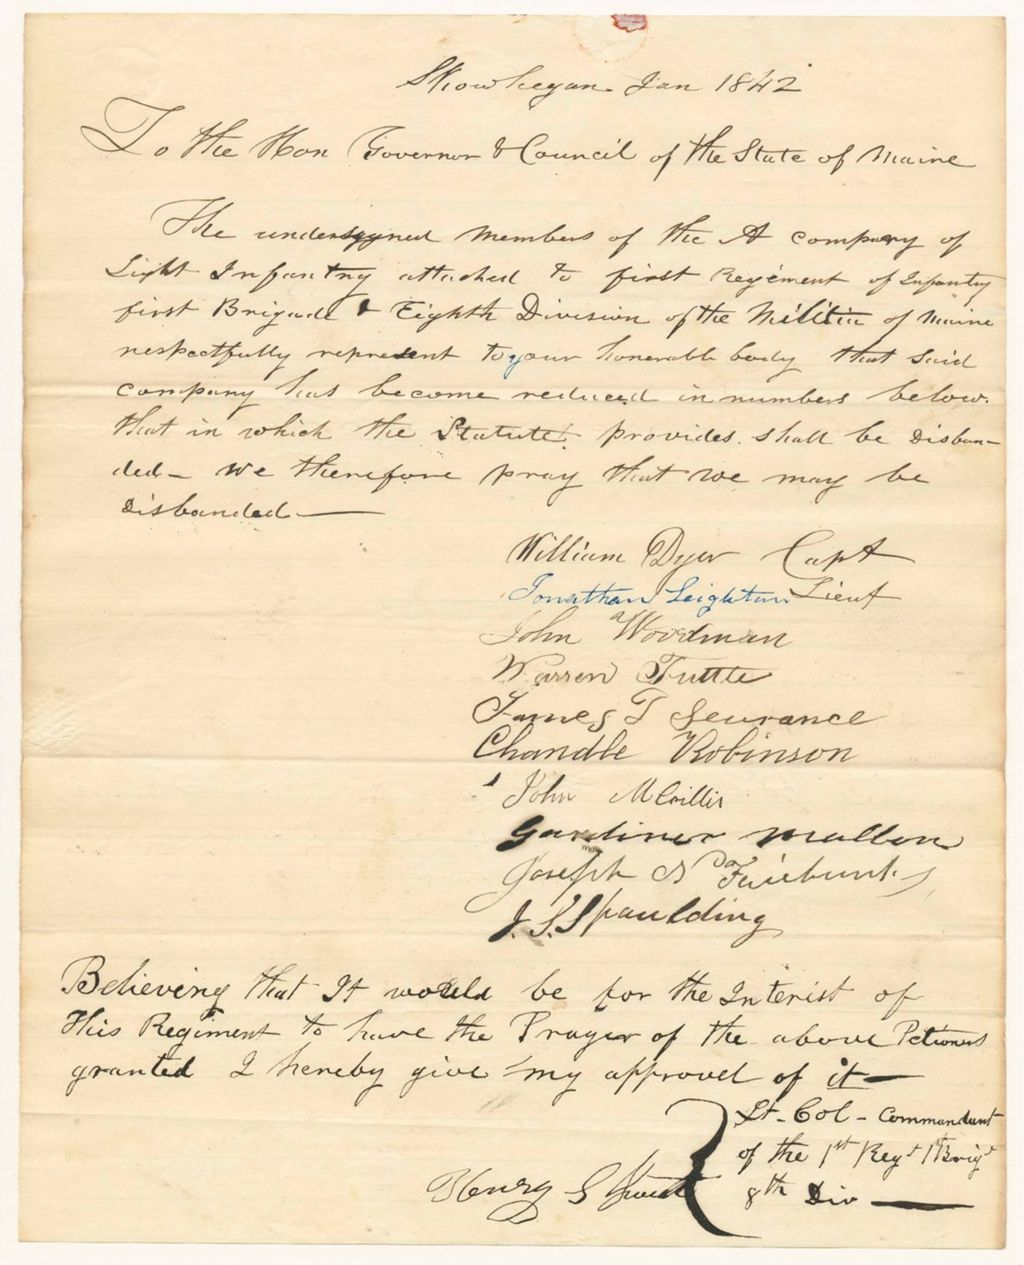 Skowhegan Jan 1842
To the Hon Governor & Council of the State of Maine
The undersigned members of the A company of
Light Infantry attached to first Regiment of Infantry
first Brigade & Eighth Division of the Militia of Maine
respectfully represent to your honerable body that said
company has become reduced in numbers below
that in which the Statute provides shall be Disban-
ded - We therefore pray that we may be
Disbanded
William Dyer Capt
Jonathan Leighton Lieut
John Woodman
Warren Tuttle
James T Seurance
Chandle Robinson
John McCrillis
Gardiner Mallon
Joseph Fairbunks
J. S. Spaulding
Believing that It would be for the Interist of
this Regiment to have the Prayer of the above Petioners
granted I hereby give my approvel of it
Lt - Col - Commandant
of the 1st Regt 1st Brigd
Henry G
8th Div